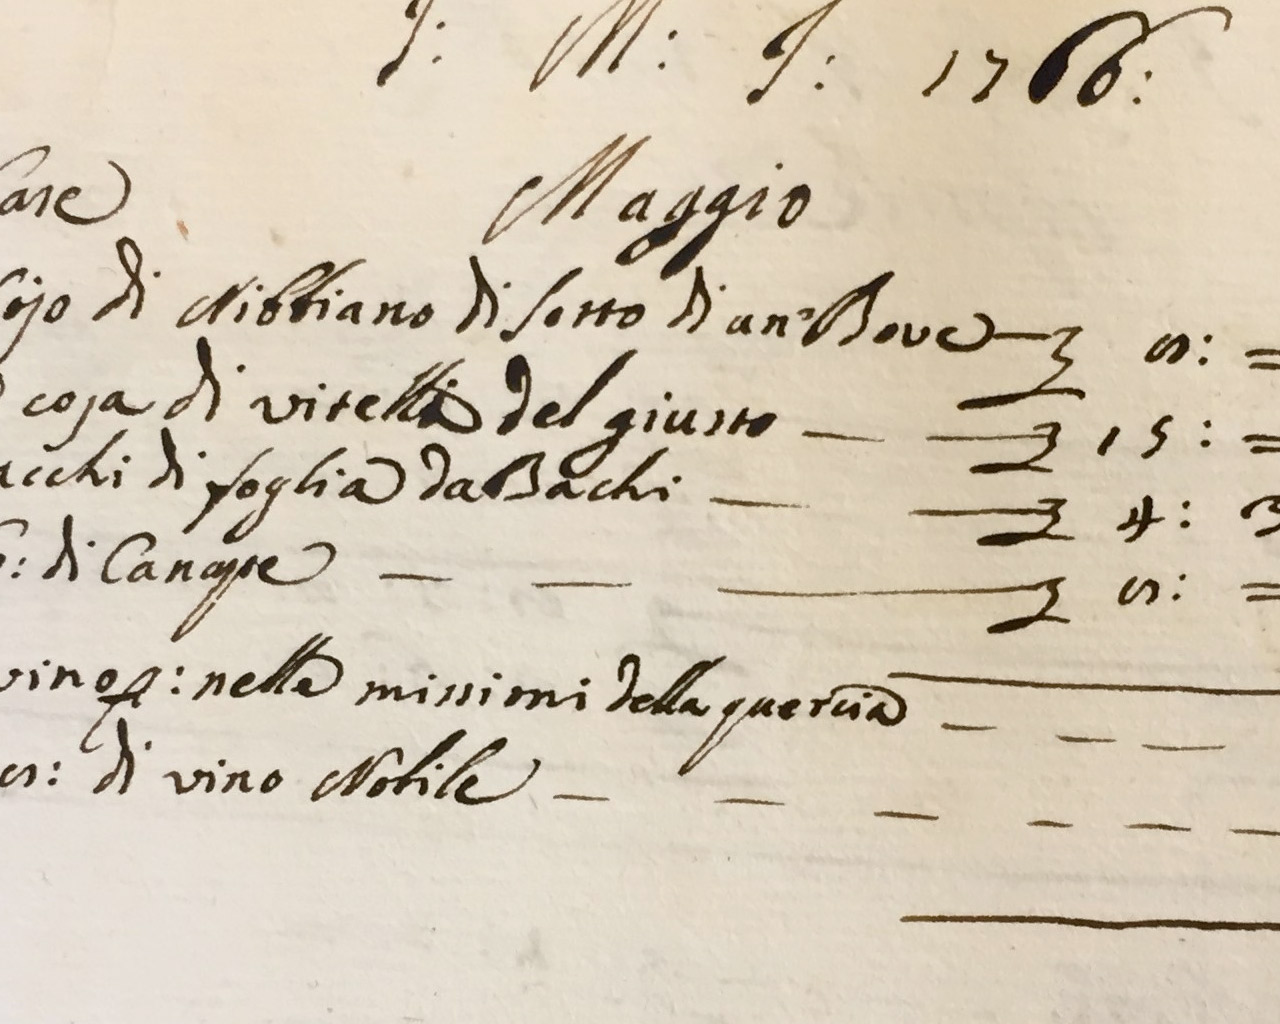 J: M: J: 1766:
Maggio
di Nibbiano di sotto di un Bove
cosa di vitelli del giusto — — 15: =
di foglia da Bachi — — 4: 3
: di Canape — — —
vino p: nelle missioni della quercia — — —
di vino Nobile — — — — — —